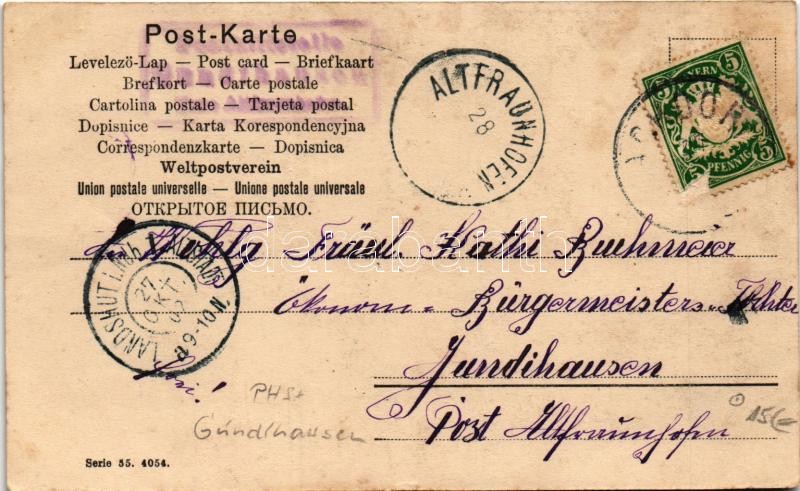 Post-Karte
Levelezö-Lap — Post card — Briefkaart
Brefkort — Carte postale
Cartolina postale — Tarjeta postal
Dopisnice — Karta Korespondencyjna
Correspondenzkarte — Dopisnica
Weltpostverein
Union postale universelle — Unione postale universale
ОТКРЫТОЕ ПИСЬМО.
ALTFRAUNHOFEN
28
BAYERN
5 5
5 5
PFENNIG
darabanth
Fräul. Kathi Buchmeier
Ökonom- Bürgermeisters Tochter
Jundihausen
Post Altfraunhofen
LANDSHUT
27
OKT
9-10 N.
PHSt
Gündlhausen
15€
Serie 55. 4054.